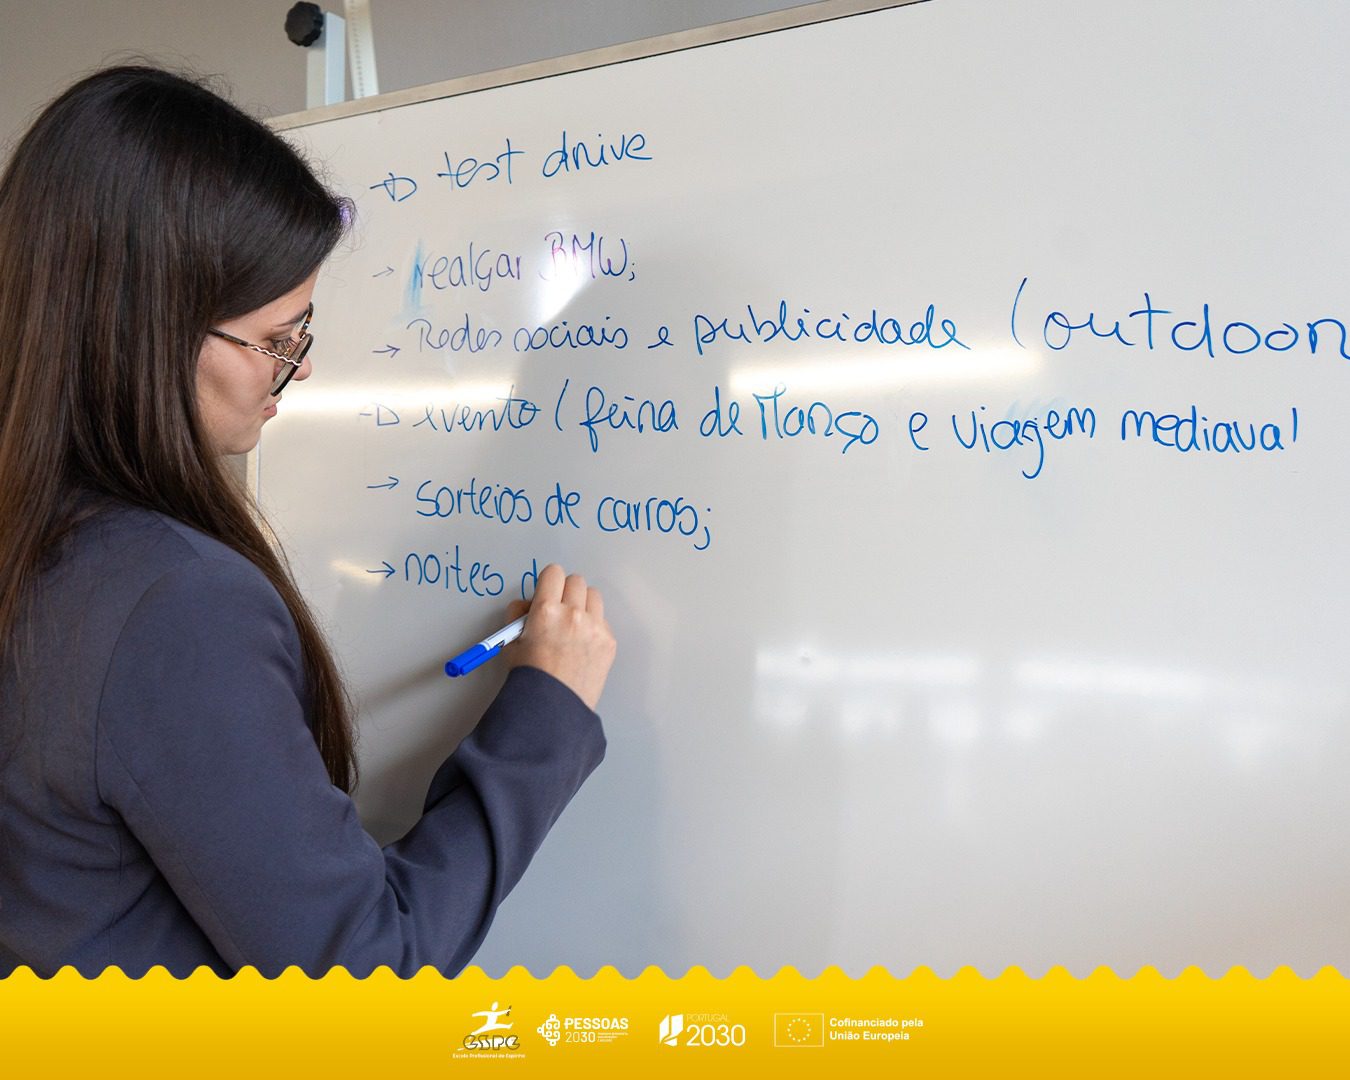 → test drive
→ realçar BMW;
→ Redes sociais e publicidade (outdoor
→ evento (feira de Março e viagem mediaval
→ sorteios de carros;
→ noites d
ESPE
Escola Profissional de Espinho
PESSOAS
2030
PORTUGAL
2030
Cofinanciado pela
União Europeia